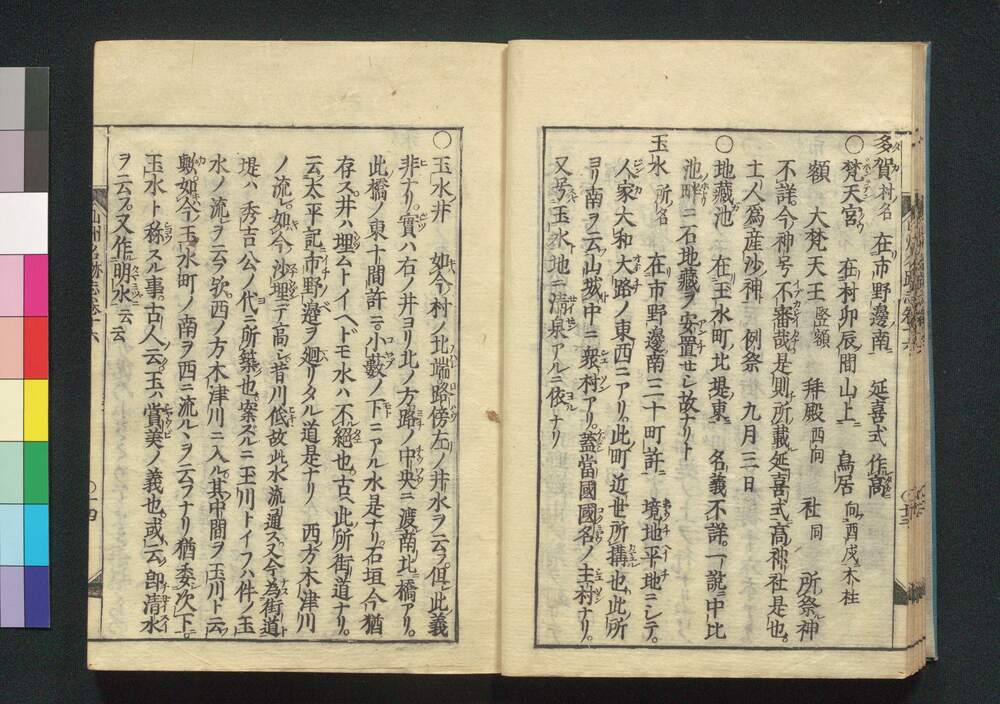 多賀 村名 在市野邊南 延喜式作高
〇梵天宮 在村卯辰間山上 鳥居 向酉戌木柱
額 大梵天王 竪額 拜殿 西向 社 同 所祭神
不詳今神号不審哉是則所載延喜式高神社是也。
土人爲産沙神 例祭 九月三日
〇地藏池 在玉水町北堤東 名義不詳。一說ニ中比
池ノ町ニ石地藏ヲ安置せシ故ナリト
玉水 所名 在市野邊南三十町許 境地平地ニシテ。
人家大和大路ノ東西ニアリ。此町近世所搆也此所
ヨリ南ヲ云山城中ニ衆村アリ。蓋當國國名ノ主村ナリ。
又号玉水ト地ニ清泉アルニ依ナリ
〇玉水井 如今村ノ北端路傍左ノ井水ヲ云フ。但シ此義
非ナリ。實ハ右ノ井ヨリ北ノ方路ノ中央ニ渡南北橋アリ。
此橋ノ東十間許ニ小藪ノ下ニアル水是ナリ。石垣今猶
存ス。井ハ埋ムトイヘドモ水ハ不絕也。古ヘ此所街道ナリ。
云太平記市野邊ヲ廻リタル道是ナリ 西ノ方木津川
ノ流。如今沙埋デ高シ昔川低故此水流通ス又今為街道
堤ハ秀吉公ノ代ニ所築也。案ズルニ玉川トイフハ件ノ玉
水ノ流ヲ云フ欤。西ノ方木津川ニ入ル。其中間ヲ玉川ト云
歟如今玉水町ノ南ヲ西ニ流ルヽヲ云フナリ猶委次下
玉水ト称スル事古人云玉ハ賞美ノ義也。或云即清水
ヲ云フ。又作明水云云
十四